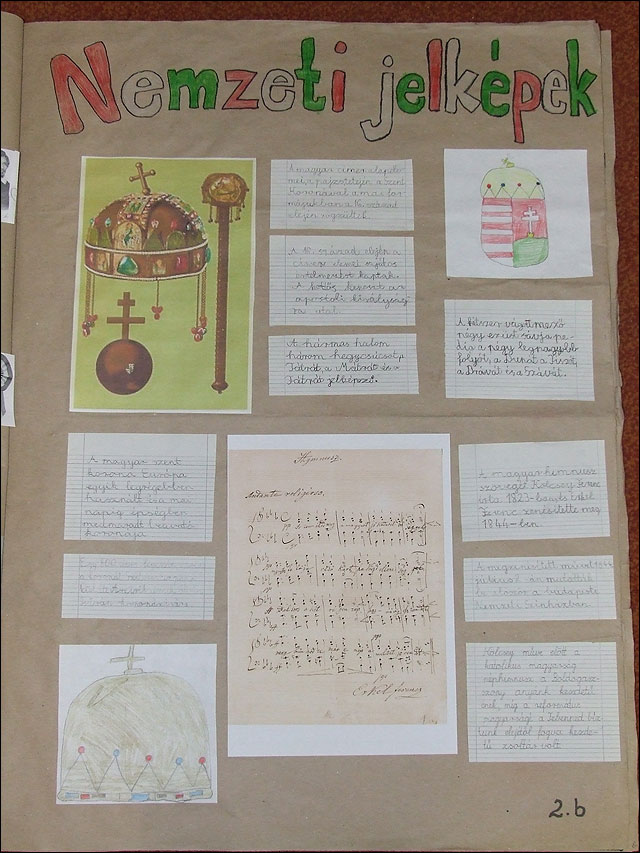 Nemzeti jelképek
A magyar címer alapele-
mei, a pajzstetején a szent
Koronával a mai for-
májukban a 16. század
elején rögzültek.
A 18. század elején a
címer elemei sajátos
értelmezést kaptak.
A kettős kereszt az
apostoli királyság-
ra utal.
A hármas halom
három hegycsúcsot,
Tátrát, a Mátrát és
Fátrát jelképezi.
A hétszer vágott mező
négy ezüst sávja pe-
dig a négy legnagyobb
folyót, a Dunát a Tiszát,
a Drávát és a Szávát.
A magyar szent
korona Európa
egyik legrégebben
használt és a mai
napig épségben
megmaradt beavató
koronája
Hymnusz.
Andante religioso.
Erkel Ferenc
A magyar himnusz
szövegét Kölcsey Ferenc
írta 1823-ban, és Erkel
Ferenc zenésítette meg
1844-ben.
A megzenésített művet 1844
július 2-án mutatták
be először a budapesti
Nemzeti Színházban.
Kölcsey műve előtt a
katolikus magyarság
néphimnusza a Boldogasz-
szony anyánk kezdetű
ének, míg a református
magyarságé a Tebenned bíz-
tunk elejétől fogva kezde-
tű zsoltár volt.
2.b